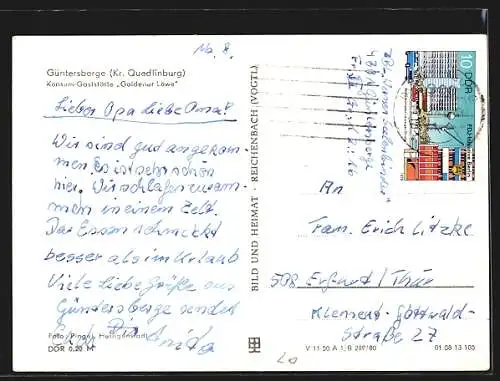 No. 8.
Güntersberge (Kr. Quedlinburg)
Konsum-Gaststätte „Goldener Löwe"
Lieber Opa liebe Oma!
Wir sind gut angekom-
men. Es ist sehr schön
hier. Wir schlafen zusam-
men in einem Zelt.
Das Essen schmeckt
besser als im Urlaub
Viele liebe Grüße aus
Güntersberge sendet
Euch
Foto: Heiligenstadt
DDR 0,20 M
BILD UND HEIMAT · REICHENBACH (VOGTL)
10 DDR
An
Fam. Erich Litzke
508 Erfurt / Thür
Klement-Gottwald-
Straße 27
V 11 50 A 1/B 280/80
01 08 13 105
20